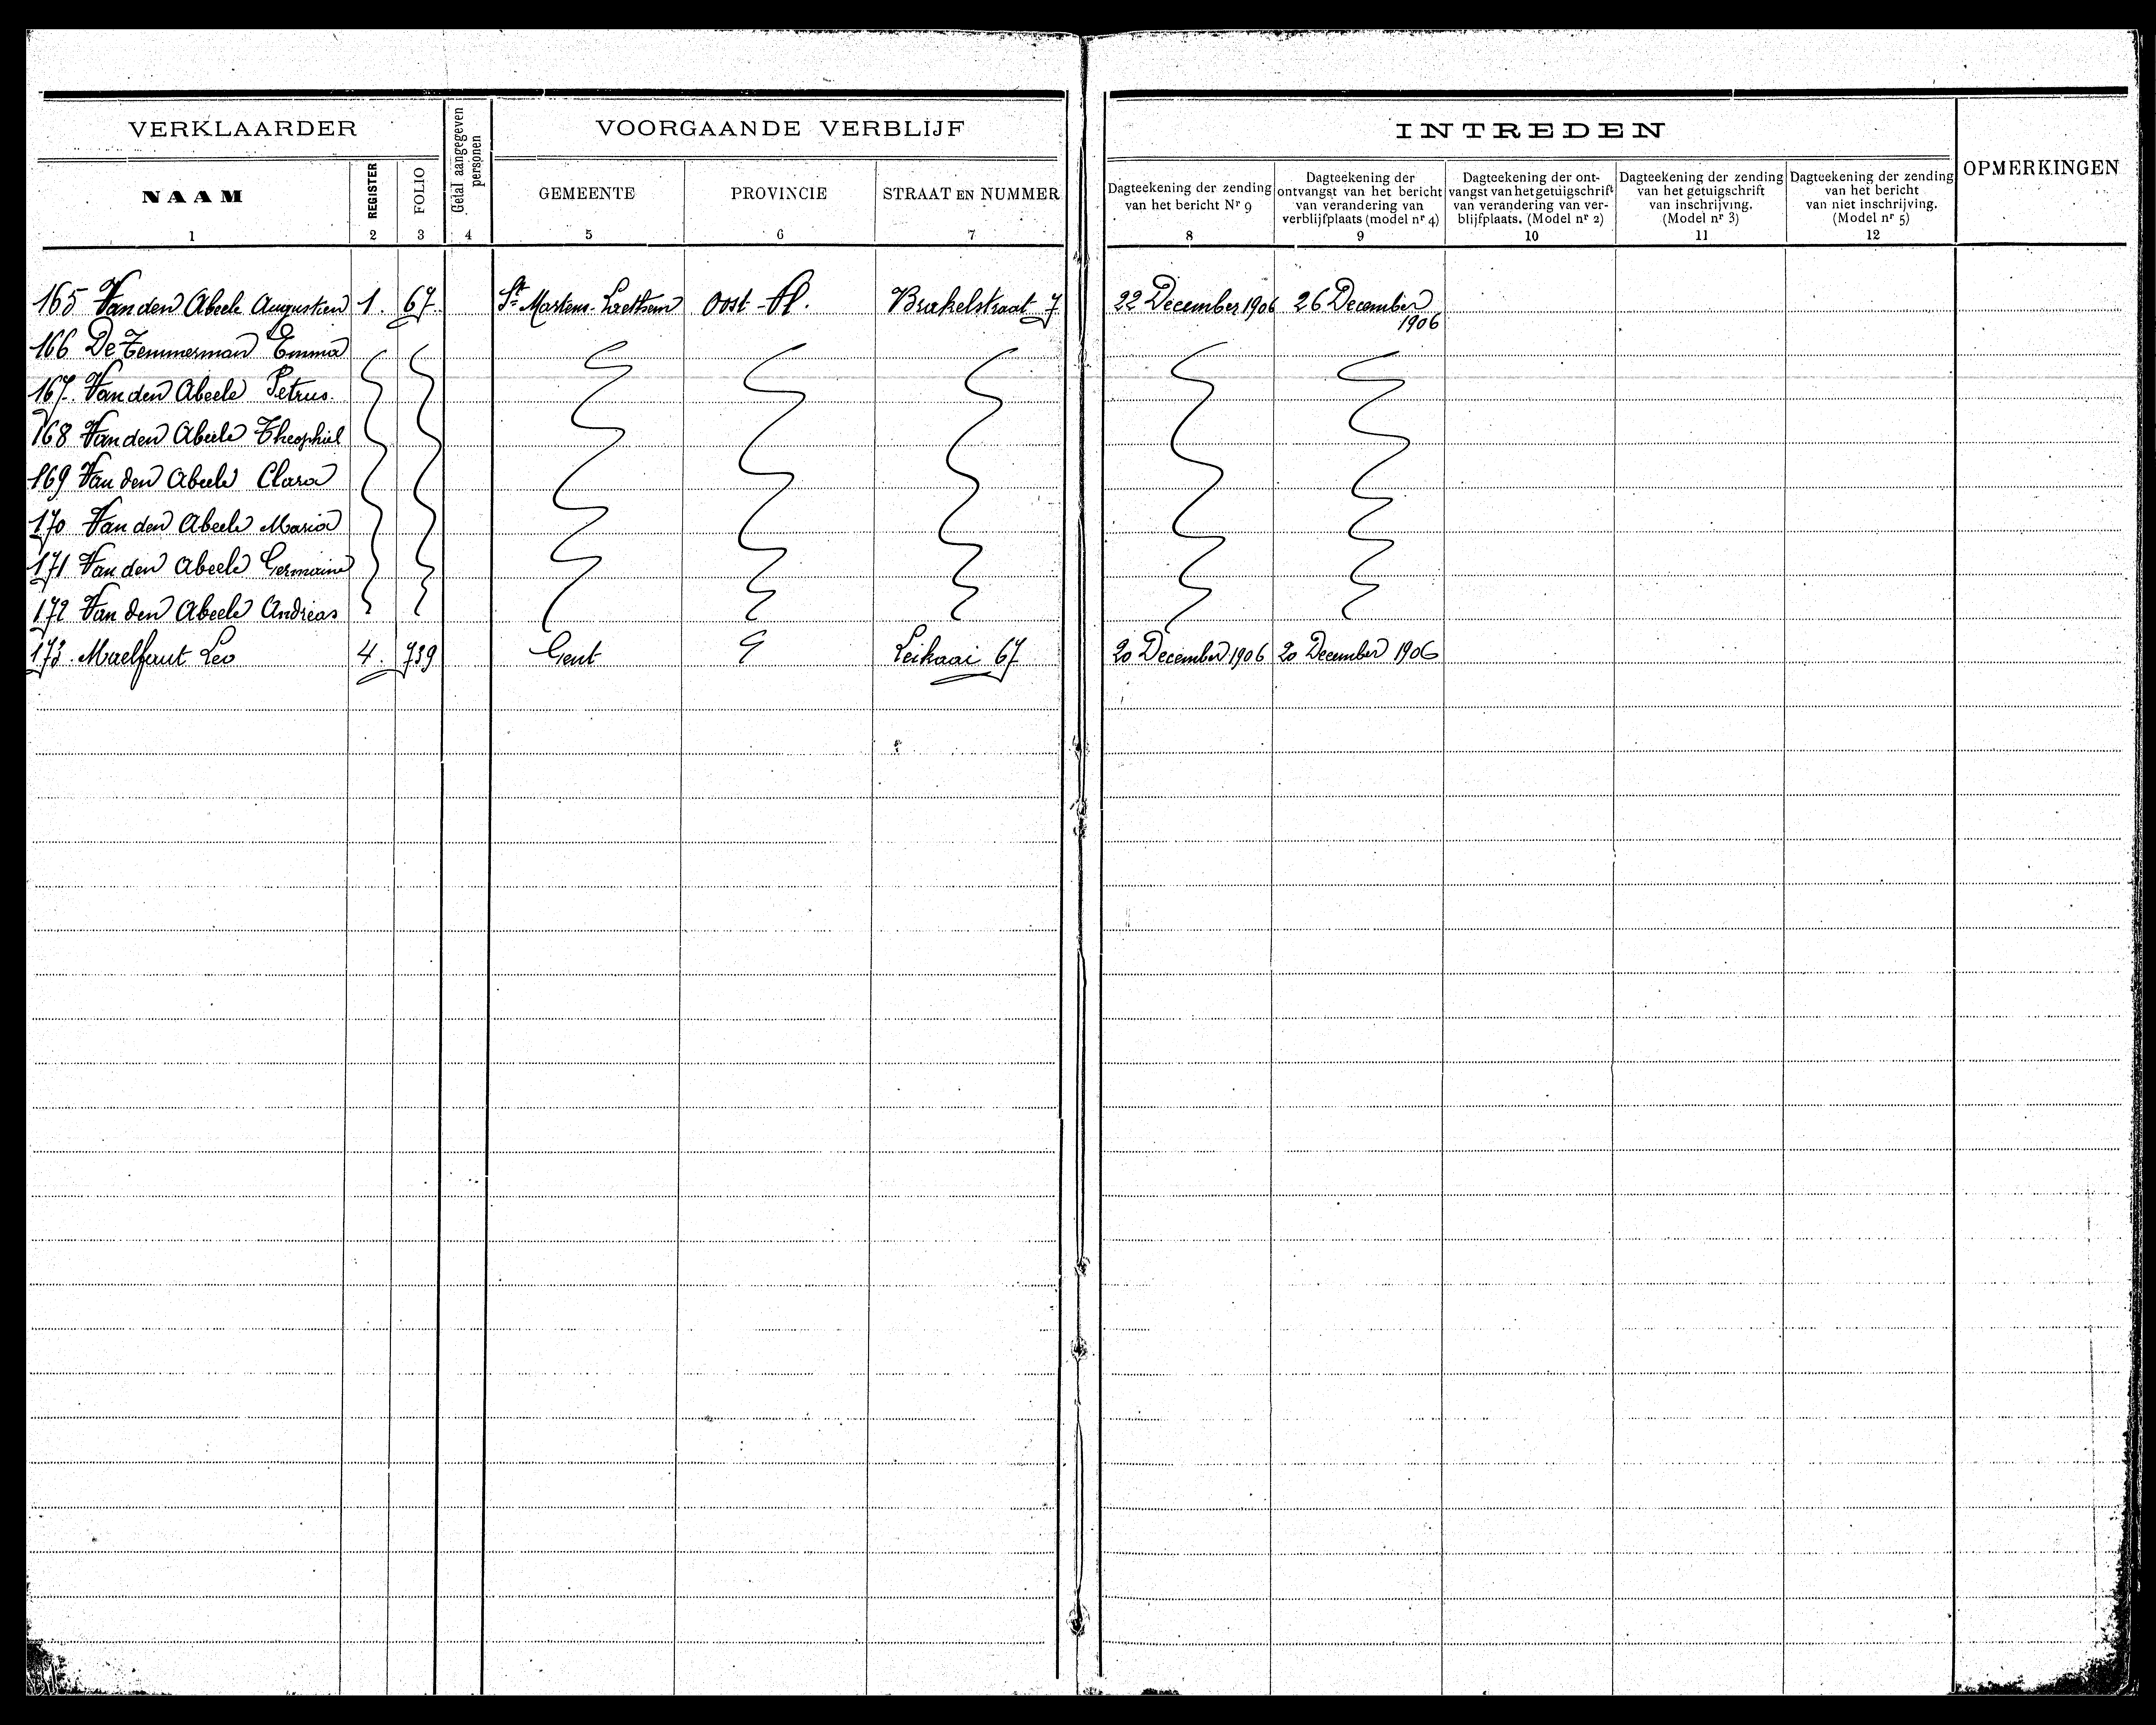 VERKLAARDER
Getal aangegeven personen
VOORGAANDE VERBLIJF
INTREDEN
OPMERKINGEN
NAAM
REGISTER
FOLIO
GEMEENTE
PROVINCIE
STRAAT EN NUMMER
Dagteekening der zending
van het bericht Nr 9
Dagteekening der
ontvangst van het bericht
van verandering van
verblijfplaats (model nr 4)
Dagteekening der ont-
vangst van het getuigschrift
van verandering van ver-
blijfplaats. (Model nr 2)
Dagteekening der zending
van het getuigschrift
van inschrijving.
(Model nr 3)
Dagteekening der zending
van het bericht
van niet inschrijving.
(Model nr 5)
1 2 3 4 5 6 7 8 9 10 11 12
165 Van den Abeele Augustien 1. 67. St Martens-Laethem Oost-Vl. Brakelstraat 7 22 December 1906 26 December
1906
166 De Temmerman Emma
167. Van den Abeele Petrus.
168 Van den Abeele Theophiel
169 Van den Abeele Clara
170 Van den Abeele Maria
171 Van den Abeele Germaine
172 Van den Abeele Andreas
173. Maelfaut Leo 4. 739 Gent Leikaai 67 20 December 1906 20 December 1906